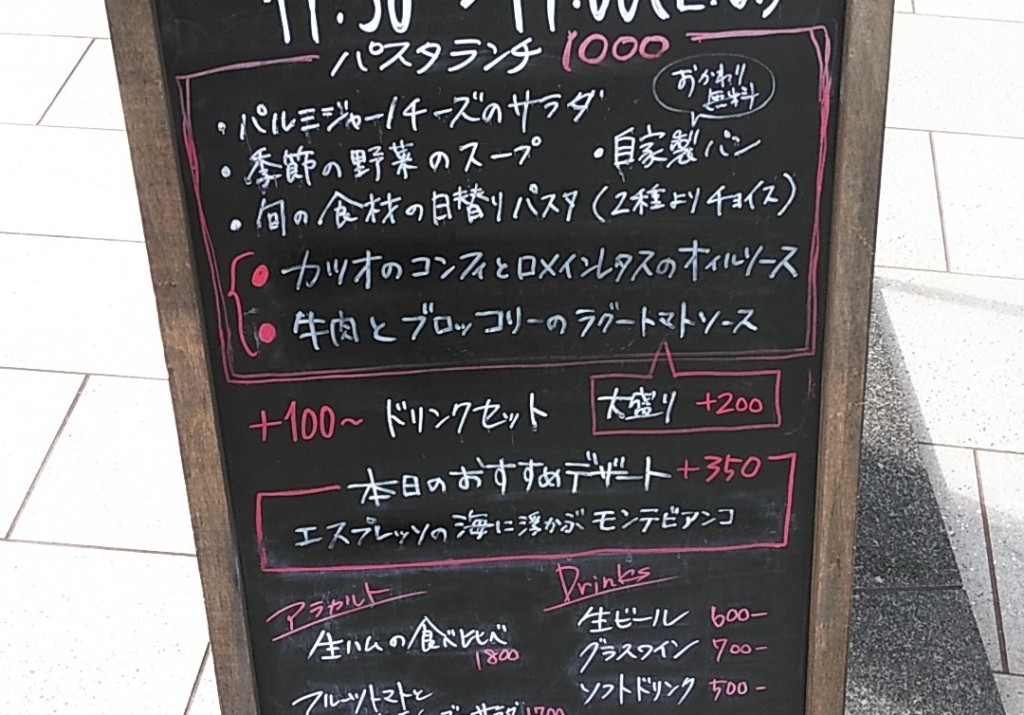 パスタランチ 1000
・パルミジャーノチーズのサラダ
おかわり
無料
・季節の野菜のスープ ・自家製パン
・旬の食材の日替りパスタ(2種よりチョイス)
● カツオのコンフィとロメインレタスのオイルソース
● 牛肉とブロッコリーのラグートマトソース
+100~ ドリンクセット
大盛り +200
本日のおすすめデザート +350
エスプレッソの海に浮かぶモンテビアンコ
アラカルト
生ハムの食べ比べ
1800
フルーツトマトと
Drinks
生ビール 600-
グラスワイン 700-
ソフトドリンク 500-